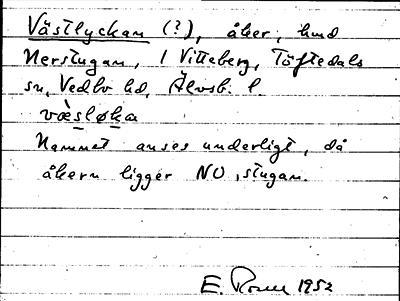 Västlyckan (?), åker, hmd
Nerstugan, 1 Vitteberg, Töftedals
sn, Vedbo hd, Älvsb. l.
væ̀sløka
Namnet anses underligt, då
åkern ligger NO, stugan.
E. 1952